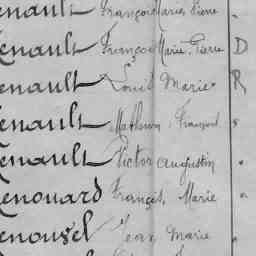 enault François Marie Pierre
enault François Marie Pierre D
enault Louis Marie R
enault Mathurin François
enault Victor Augustin
enouard François Marie
enouvel Jean Marie